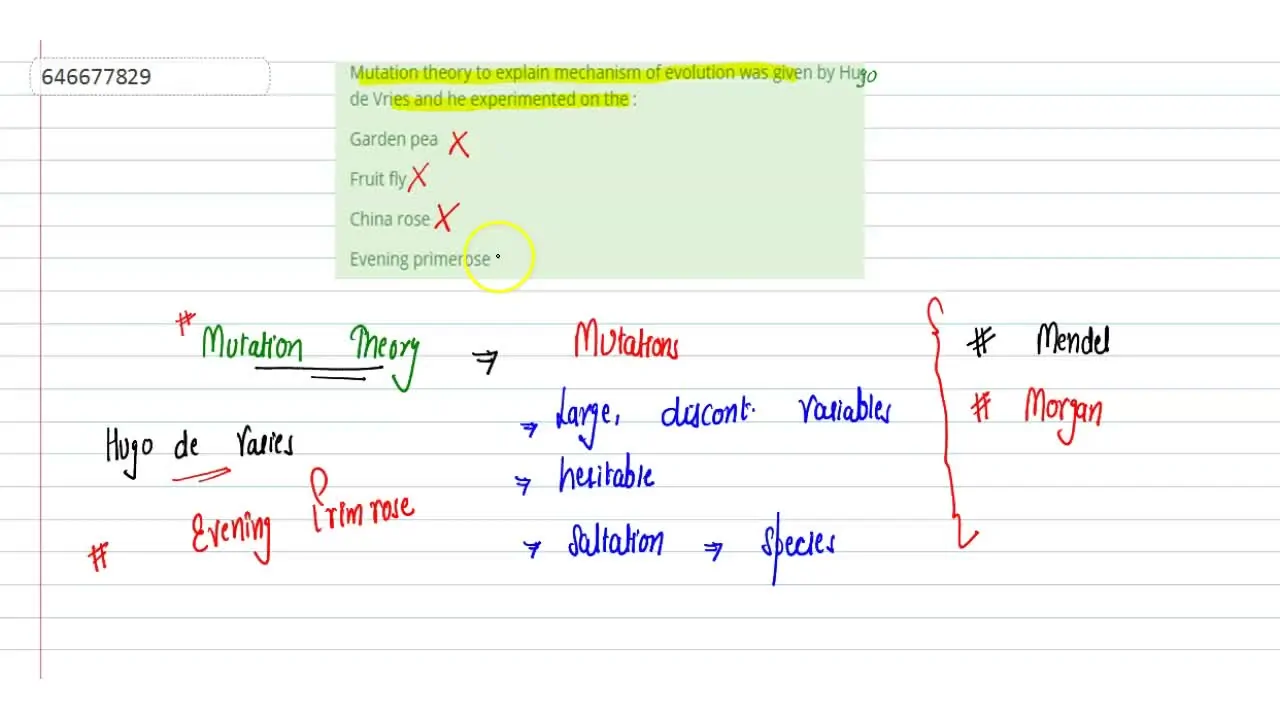 646677829
Mutation theory to explain mechanism of evolution was given by Hugo
de Vries and he experimented on the :
Garden pea X
Fruit fly X
China rose X
Evening primerose
# Mutation Theory ⇒ Mutations
→ Large, discont. variables
⇒ heritable
→ Saltation ⇒ Species
Hugo de Varies
# Evening Primrose
# Mendel
# Morgan